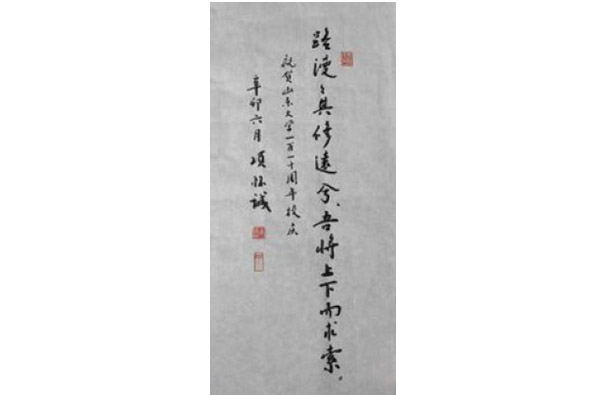 路漫々其修遠兮、吾将上下而求索。
祝贺山东大学一百一十周年校庆
辛卯六月 项怀诚